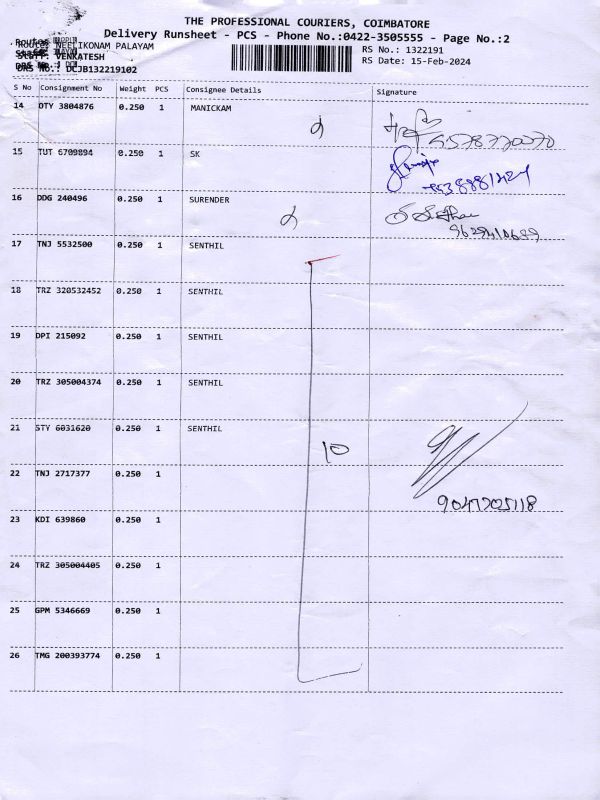 THE PROFESSIONAL COURIERS, COIMBATORE
Delivery Runsheet - PCS - Phone No.:0422-3505555 - Page No.:2
Route: NEELIKONAM PALAYAM
RS No.: 1322191
Staff: VENKATESH
RS Date: 15-Feb-2024
DRS No.: DCJB132219102
S No Consignment No Weight PCS Consignee Details Signature
14 DTY 3804876 0.250 1 MANICKAM
15 TUT 6709894 0.250 1 SK
16 DDG 240496 0.250 1 SURENDER
17 TNJ 5532500 0.250 1 SENTHIL
18 TRZ 320532452 0.250 1 SENTHIL
19 DPI 215092 0.250 1 SENTHIL
20 TRZ 305004374 0.250 1 SENTHIL
21 STY 6031620 0.250 1 SENTHIL
10
22 TNJ 2717377 0.250 1
9047205118
23 KDI 639860 0.250 1
24 TRZ 305004405 0.250 1
25 GPM 5346669 0.250 1
26 TMG 200393774 0.250 1